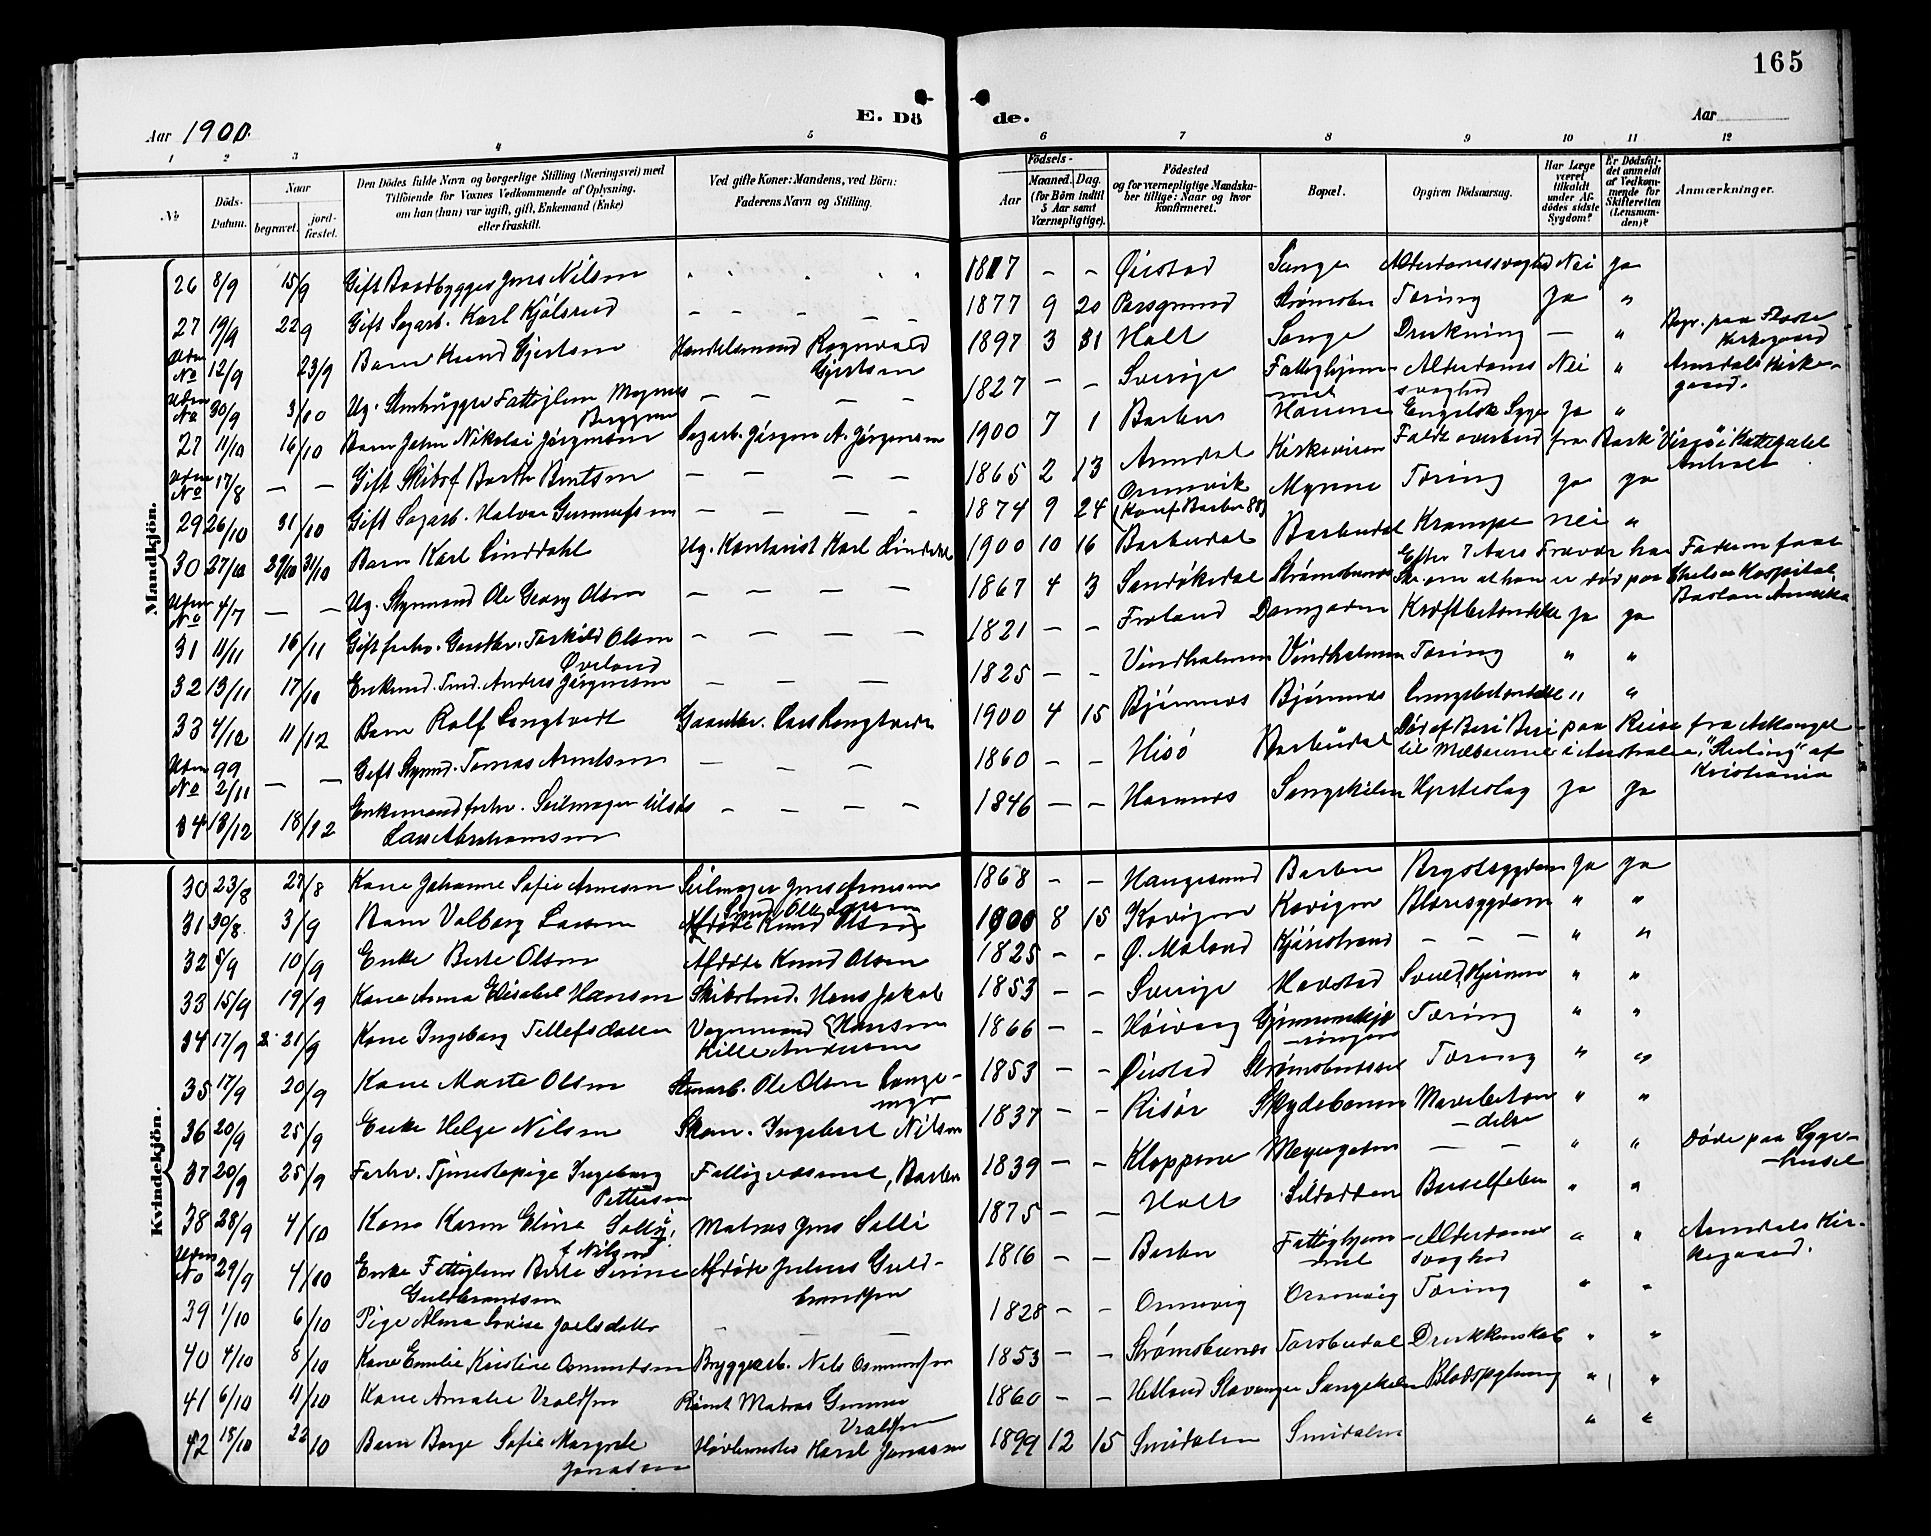 165
Aar 1900.
E. Dö
de.
Aar
1 2 3 4 5 6 7 8 9 10 11 12
No
Döds-Datum.
Naar
begravet.
jord-fæstet.
Den Dödes fulde Navn og borgerlige Stilling (Næringsvei) med
Tilföiende for Voxnes Vedkommende af Oplysning,
om han (hun) var ugift, gift, Enkemand (Enke)
eller fraskilt.
Ved gifte Koner: Mandens, ved Börn:
Faderens Navn og Stilling.
Födsels-
Aar
Maaned. Dag.
(for Börn indtil
5 Aar samt
Værnepligtige).
Födested
og for værnepligtige Mandska-
ber tillige: Naar og hvor
Konfirmeret.
Bopæl.
Opgiven Dödsaarsag.
Har Læge
været
tilkaldt
under Af-
dödes sidste
Sygdom?
Er Dödsfal-
det anmeldt
af Vedkom-
mende for
Skifteretten
(Lensman-
den)?
Anmærkninger.
Mandkjön.
26 8/9 15/9 Gift Baadbygger Jens Nilsen 1817 – – Øiestad Songe Alderdomssvaghed Nei ja
27 19/9 22/9 Gift Sagarb. Karl Kjölsrud – – – – 1877 9 20 Porsgrund Strømsbu Tæring Ja "
Uden No 12/9 23/9 Barn Knud Gjertsen Handelsmand Ragnvald Gjertsen 1897 3 31 Holt Songe Drukning – " Begr. paa Flosta Kirkegaard
Uden No 30/9 3/10 Ug. Stenhugger Fattiglem Magnus Berggren – – – – 1827 – – Sverige Fattighjemmet Alderdomssvaghed Nei " Arendals Kirkegaard.
27 11/10 16/10 Barn John Nikolai Jörgensen Sagarb. Jörgen A. Jörgensen 1900 7 1 Barbu Engelsk Syge Ja "
Uden No 17/8 – – Gift Skibsf. Bernt Berntsen – – – – 1865 2 13 Arendal Kirkeveien Faldt overbord fra Bark "Virgo" i Kattegattet Anholt
29 26/10 31/10 Gift Sagarb. Halvor Gunnufsen – – – – 1874 9 24 Omnevik (Konf Barbu 88) Myrene Tæring ja ja
30 27/10 29/10 31/10 Barn Karl Linddahl Ug. Kontorist Karl Linddahl 1900 10 16 Barbudal Barbudal Krampe nei "
Uden No 4/7 – – Ug. Styrmand Ole Georg Olsen – – – – 1867 4 3 Sandökedal Strømsbunes Efter 7 Aars Fravær har Faderen faaet Skr. om at han er død paa Chelsea Hospital Boston Amerika
31 11/11 16/11 Gift forhv. Gaardbr. Torkild Olsen Øveland – – – – 1821 – – Froland Damgaden Kræftbetændelse Ja ja
32 13/11 17/10 Enkemd. Tmd. Anders Jörgensen – – – – 1825 – – Vindholmen Vindholmen Tæring " "
33 4/12 11/12 Barn Rolf Longtvedt Gaardbr. Lars Longtvedt 1900 4 15 Bjönnes Bjönnes Lungebetændelse " "
Uden No 99 2/11 – – Gift Styrmd. Tomas Arntsen – – – 1860 – – Hisö Barbudal Död af Beri Beri paa Reise fra Arkangel til Melbourne i Australien, "Sterling" af Kristiania
34 13/12 18/12 Enkemand forhv. Seilmager Lars Abrahamsen – – – – 1846 – – Havnnes Songekilen Hjerteslag Ja ja
Kvindekjön.
30 23/8 27/8 Kone Johanne Sofie Arnesen Seilmager Jens Arnesen 1868 – – Haugesund Barbu Brystsygdom Ja ja
31 30/8 3/9 Barn Valborg Larsen Smed Ole Larsen 1900 8 15 Kovigen Kovigen Blæresygdom " "
32 5/9 10/9 Enke Berte Olsen Afdøde Knud Olsen 1825 – – Ø. Moland Kjöristrand – – – " "
33 15/9 19/9 Kone Anna Elisabet Hansen Skibstmd. Hans Jakob Hansen 1853 – – Sverige Havstad Svulst i Hjernen " "
34 17/9 21/9 Kone Ingeborg Tellefsdatter Vognmand Kille Andersen 1866 – – Høivaag Tæring " "
35 17/9 20/9 Kone Marte Olsen Stenarb. Ole Olsen Longemyr 1853 – – Øiestad Strømsbuaasen Tæring " "
36 20/9 25/9 Enke Helge Nilsen Skom. Ingebret Nilsen 1837 – – Risør Skydebanen Mavebetændelse " "
37 20/9 25/9 Forhv. Tjenestepige Ingeborg Pettersen Fattigvæsenet, Barbu 1839 – – Kloppene Meyergaten – – " " Döde paa Sygehuset
38 28/9 4/10 Kone Karen Eline Solli, f. Nilsen Matros Jens Solli 1875 – – Holt Sildodden Barselfeber " "
Uden No 29/9 4/10 Enke Fattiglem Berte Serine Guldbrandsen Afdøde Julius Guldbrandsen 1816 – – Barbu Fattighjemmet Alderdomssvaghed " " Arendals Kirkegaard.
39 1/10 6/10 Pige Alma Lovise Joelsdatter – – – 1828 – – Omnevig Omnevig Tæring " "
40 4/10 8/10 Kone Emelie Kristine Osmundsen Bryggearb. Nils Osmundsen 1853 – – Strømsbunes Torsbudal Drukkenskab " "
41 6/10 11/10 Kone Amalie Vraldsen Rømt Matros Gunnar Vraldsen 1860 – – Hetland Stavanger Songekilen Blodspytning " "
42 18/10 22/10 Barn Borge Sofie Margrete Jonassen Hövlemester Karel Jonassen 1899 12 15 Smidalen Smidalen " "